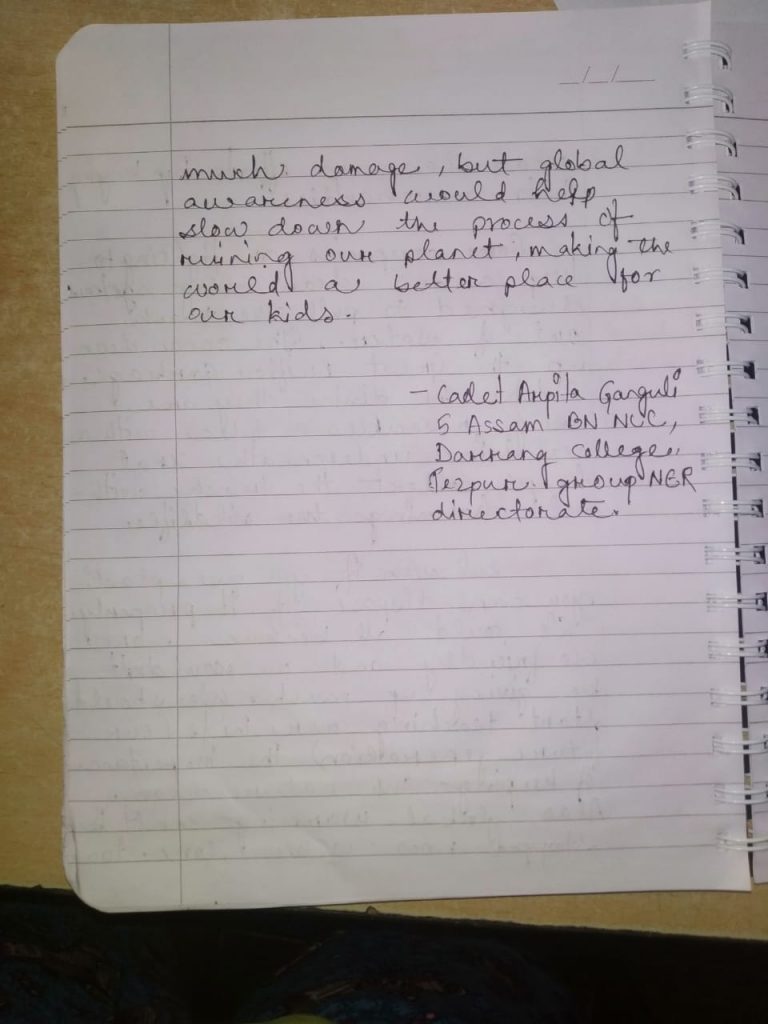 _/_/__
much damage, but global
awareness would help
slow down the process of
ruining our planet, making the
world a better place for
our kids.
- Cadet Arpita Ganguli
5 Assam BN NCC,
Darrang College,
Tezpur group NER
directorate.